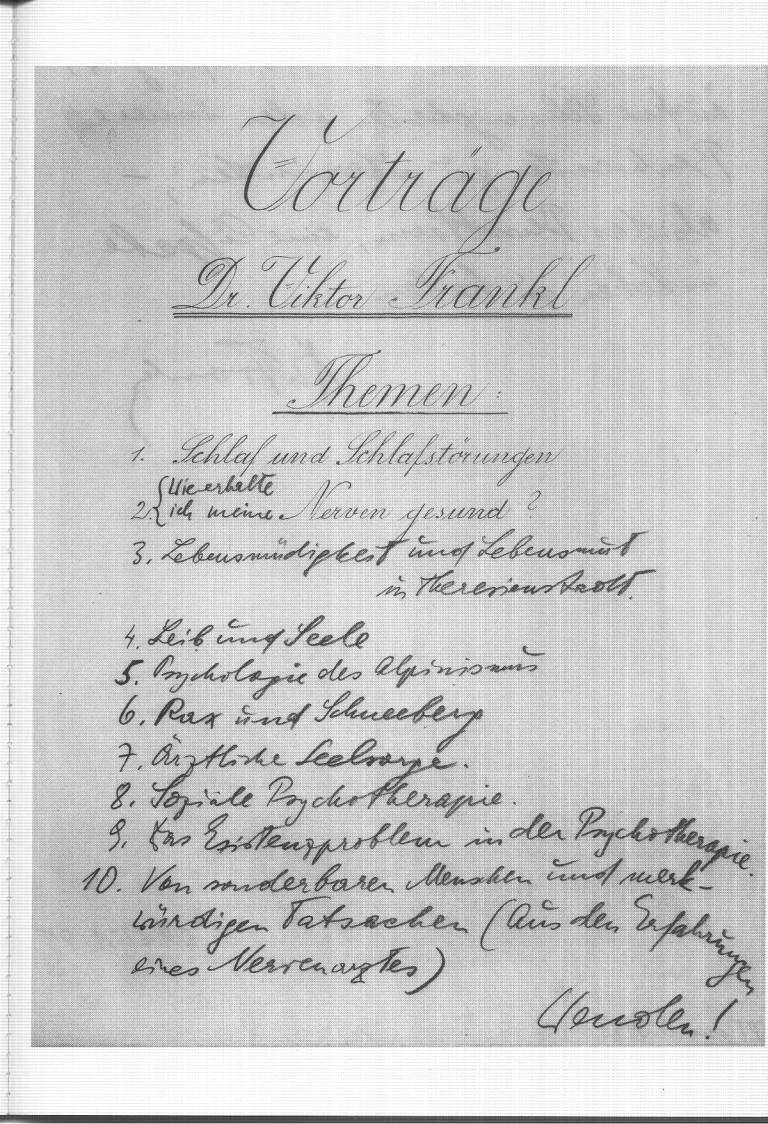 Vorträge
Dr. Viktor Frankl
Themen:
1. Schlaf und Schlafstörungen
Wie erhalte
2. ich meine Nerven gesund?
3. Lebensmüdigkeit und Lebensmut
in Theresienstadt.
4. Leib und Seele
5. Psychologie des Alpinismus
6. Rax und Schneeberg
7. Ärztliche Seelsorge.
8. Soziale Psychotherapie.
9. Das Existenzproblem in der Psychotherapie.
10. Von sonderbaren Menschen und merk-
würdigen Tatsachen (Aus den Erfahrungen
eines Nervenarztes)
Wenden!